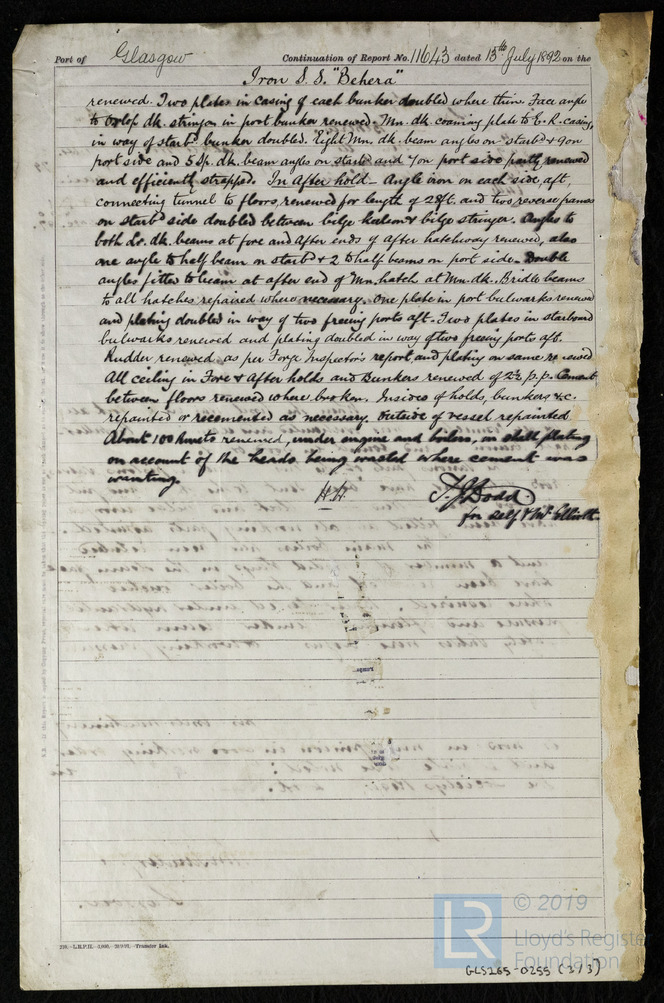 Port of Glasgow Continuation of Report No. 11643 dated 13th July 1892 on the
Iron S.S. "Behera"
renewed. Two plates in casing of each bunker doubled where thin. Face angle
to orlop dk. stringer in port bunker renewed. Mn. dk. coaming plate to E.R. casing,
in way of starbd bunker doubled. Eight Mn. dk. beam angles on starbd & 9 on
port side and 5 Sp. dk. beam angles on starbd and 7 on port side partly renewed
and efficiently strapped. In After hold - Angle iron on each side, aft,
connecting tunnel to floors, renewed for length of 28ft. and two reverse frames
on starbd side doubled between bilge keelson & bilge stringer. Angles to
both Lr. dk. beams at fore and After ends of After hatchway renewed, also
one angle to half beam on starbd & 2 to half beams on port side - Double
angles fitted to beam at after end of Mn. hatch at Mn. dk. Bridle beams
to all hatches repaired where necessary. One plate in port bulwarks renewed
and plating doubled in way of two freeing ports aft. Two plates in starboard
bulwarks renewed and plating doubled in way of two freeing ports aft.
Rudder renewed, as per Forge Inspector's report, and plating on same renewed
All ceiling in Fore & After holds and Bunkers renewed of 2½ p.p. Cement
between floors renewed where broken. Insides of holds, bunkers &c.
repainted or recemented as necessary. Outside of vessel repainted
About 100 rivets renewed, under engine and boilers, in shell plating
on account of the heads being wasted where cement was
wanting.
H.H. T.J. Dodd
for self & Mr. Elliott
219.-L.R.P.H.-3,000.- -Transfer Ink.
LR © 2019
Lloyd's Register
Foundation
GLS265-0255 (3/3)